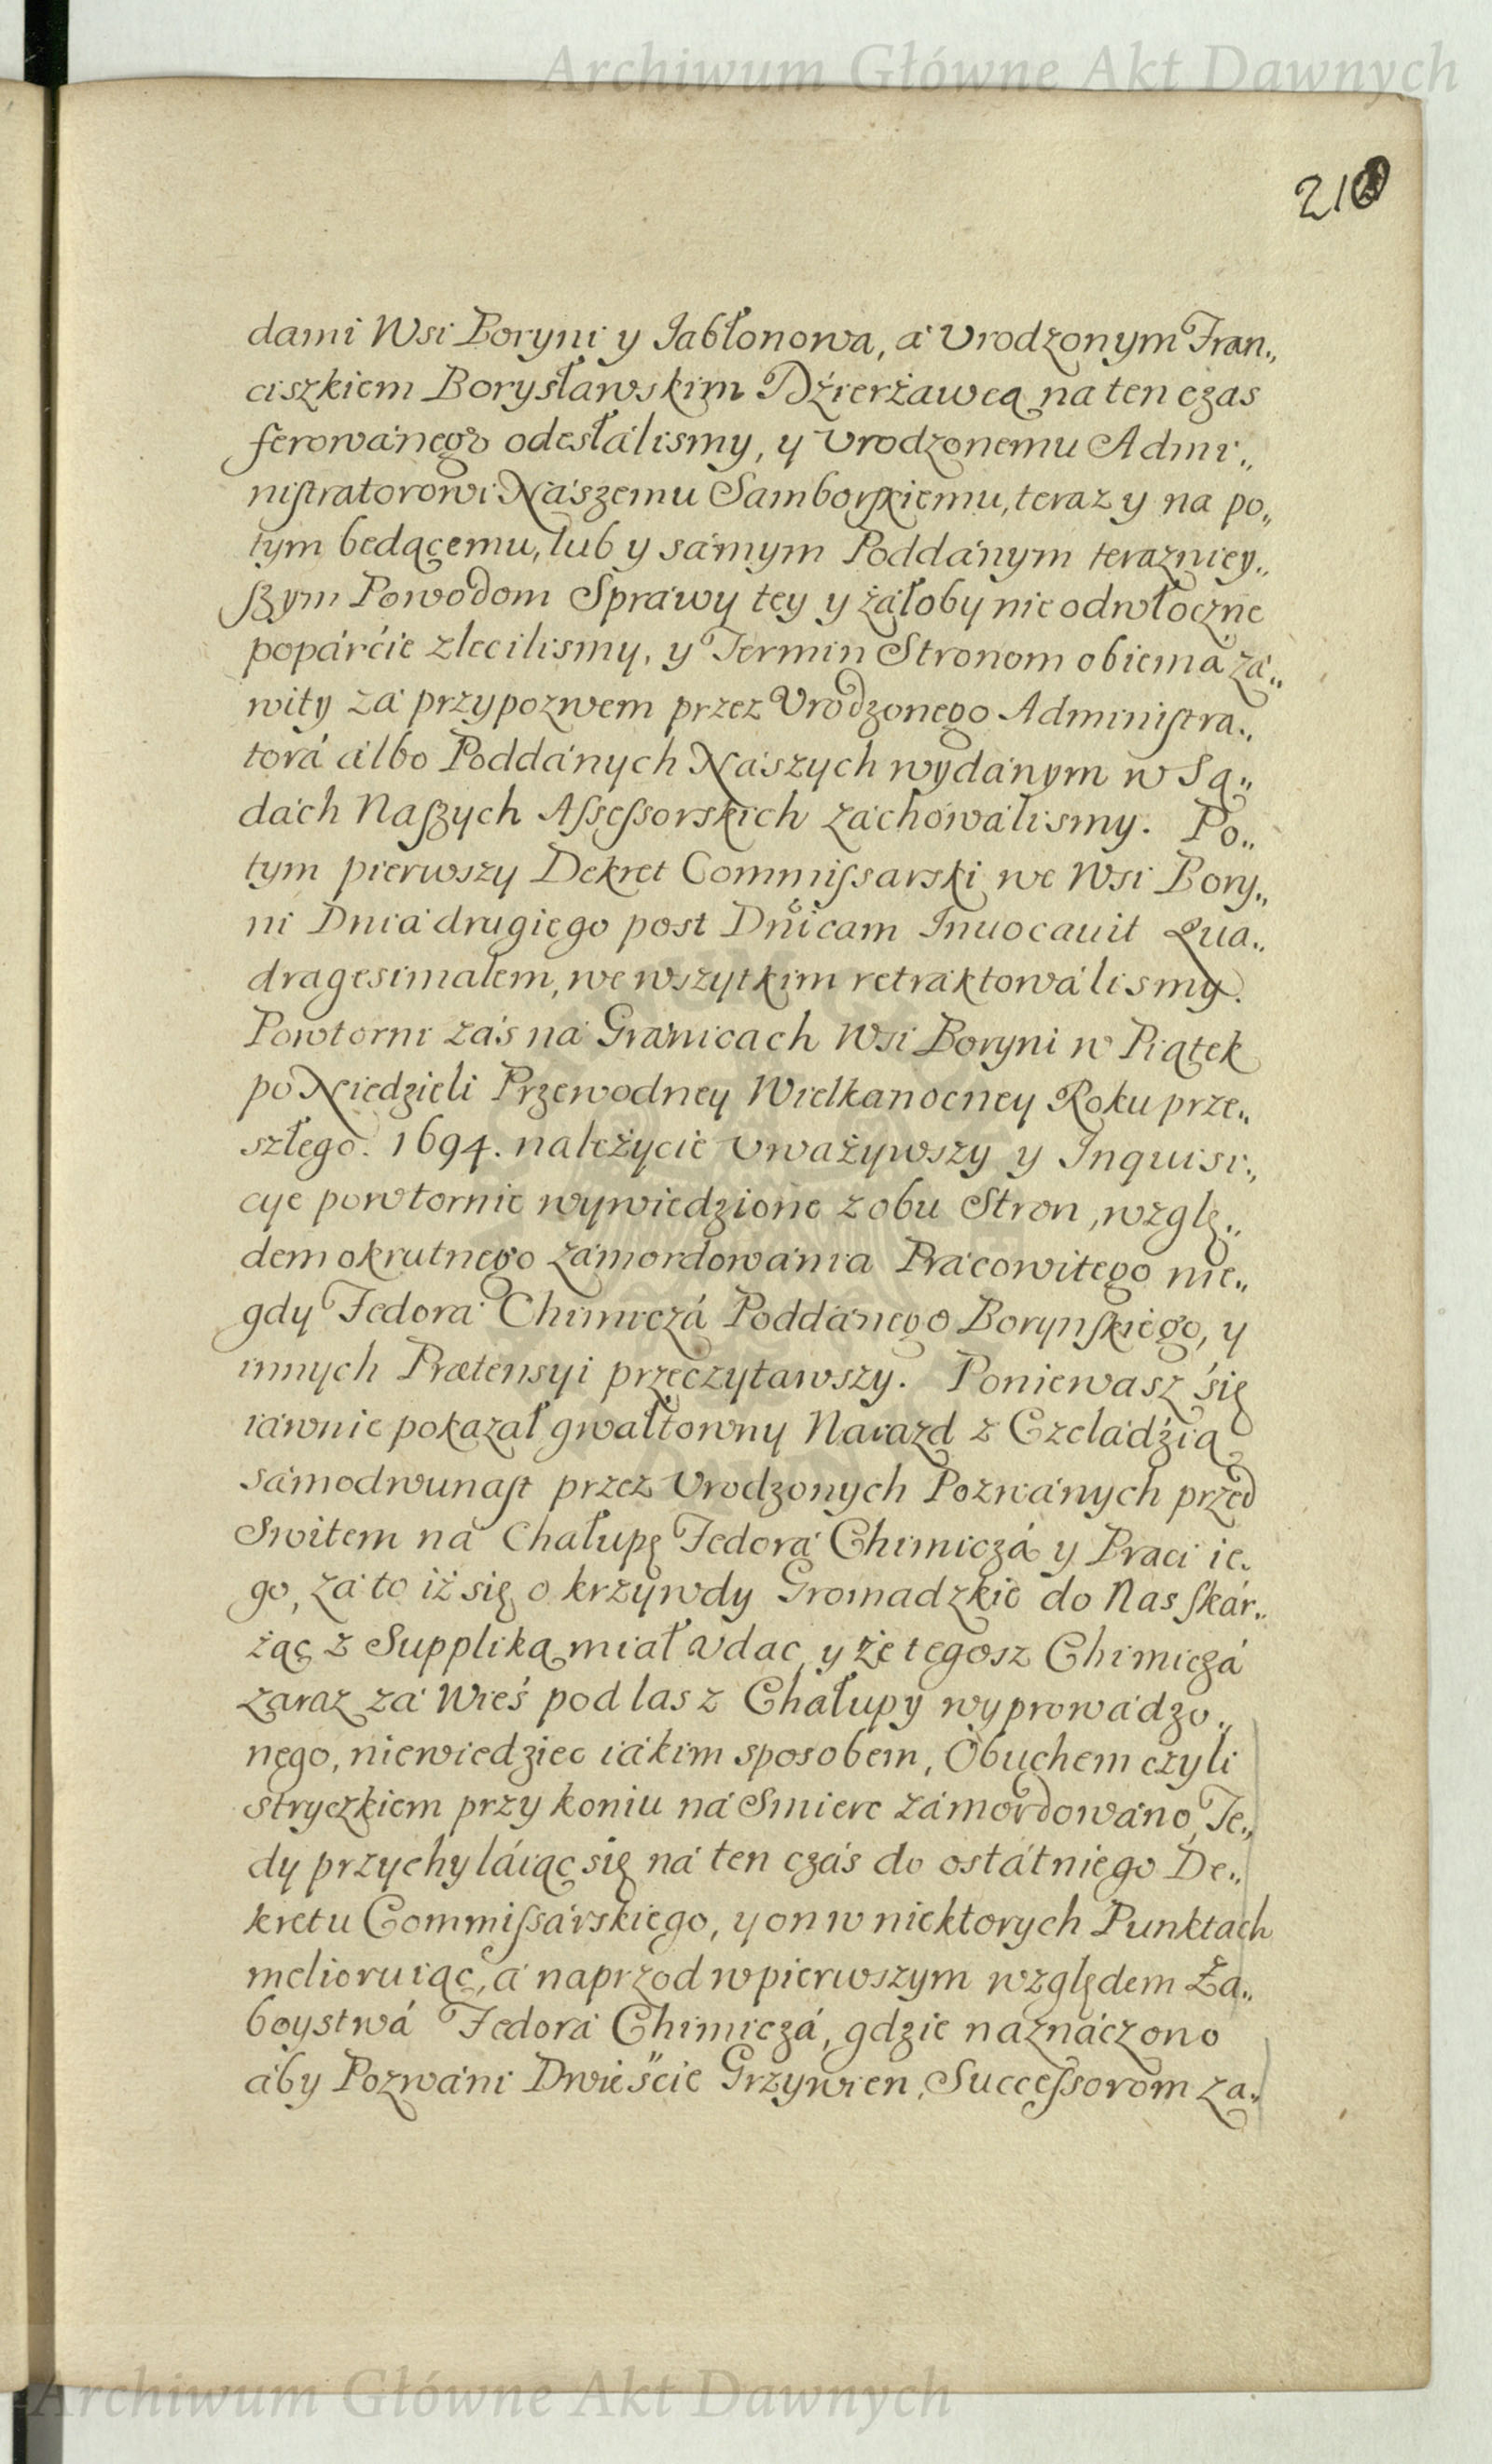 Archiwum Główne Akt Dawnych
210
dami Wsi Boryni y Jabłonowa, á Vrodzonym Fran„
ciszkiem Borysławskim Dźierżawcą na ten czas
ferowánego odesłálismy, y Vrodzonemu Admi„
nistratorowi Nászemu Samborskiemu, teraz y na po„
tym bedącemu, lub y sámym Poddánym terazniey„
szym Powodom Spráwy tey y żáłoby nieodwłoczne
popárćie zlecilismy, y Termin Stronom obiema zá„
wity zá przypozwem przez Vrodzonego Administra„
torá álbo Poddánych Nászych wydánym w Są„
dách Naszych Assessorskich záchowálismy. Po„
tym pierwszy Dekret Commissarski we Wsi Bory„
ni Dniá drugiego post Dnicam Inuocauit Qua„
dragesimalem, we wszytkim retraktowálismy.
Powtorni zás ná Granicach Wsi Boryni w Piątek
po Niedzieli Przewodney Wielkanocney Roku prze„
szłego. 1694. należycie Vważywszy y Inquisi„
cye powtornie wywiedzione z obu Stron, wzglę„
dem okrutnego zámordowánia Prácowitego nie„
gdy Fedorá Chimiczá Poddánego Borynskiego, y
innych Prætensyi przeczytawszy. Poniewasz się
iáwnie pokazał gwałtowny Naiazd z Czeladźią
sámodwunast przez Vrodzonych Pozwánych przed
Switem ná Chałupę Fedorá Chimiczá y Braci ie„
go, zá to iż się o krzywdy Gromadzkie do Nas skár„
żąc z Suppliką miał vdac, y że tegosz Chimiczá
zaraz zá Wieś pod las z Chałupy wyprowádzo„
nego, niewiedziec iákim sposobem, Obuchem czyli
stryczkiem przy koniu ná Smierc zámordowáno, Te„
dy przychyláiąc się ná ten czás do ostátniego De„
kretu Commissárskiego, y on w niektorych Punktach
melioruiąc, á naprzod w pierwszym względem Za„
boystwá Fedorá Chimiczá, gdzie náznáczono
áby Pozwáni Dwieśćie Grzywien, Successorom za„
Archiwum Główne Akt Dawnych